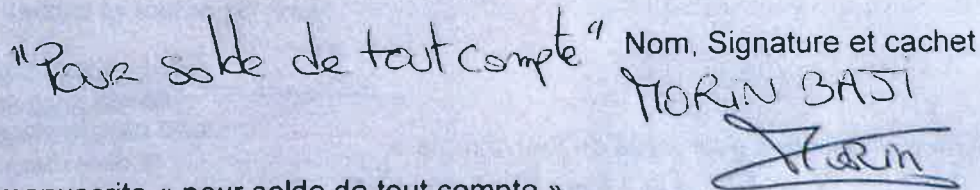 "Pour solde de tout compte" Nom, Signature et cachet
MORIN BAJI
Morin
manuscrite « pour solde de tout compte »